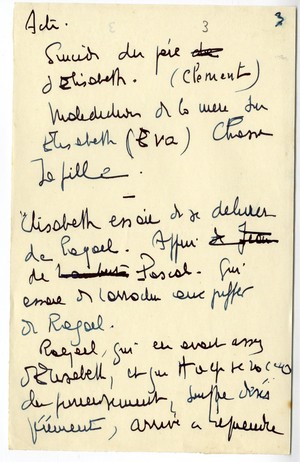 3
3
Acte.
Suicide du père de
d'Elisabeth. (Clément)
Malédiction de la mère sur
Elisabeth (Eva) Chasse
la fille.
—
Elisabeth essaie de se délivrer
de Ragael. Appui de Jean
de Pascal. qui
essaie de l'arracher aux griffes
de Ragael.
Ragael, qui en avait assez
d'Elisabeth, et qui
du pressentiment, souffre désés
pérément, arrive à reprendre